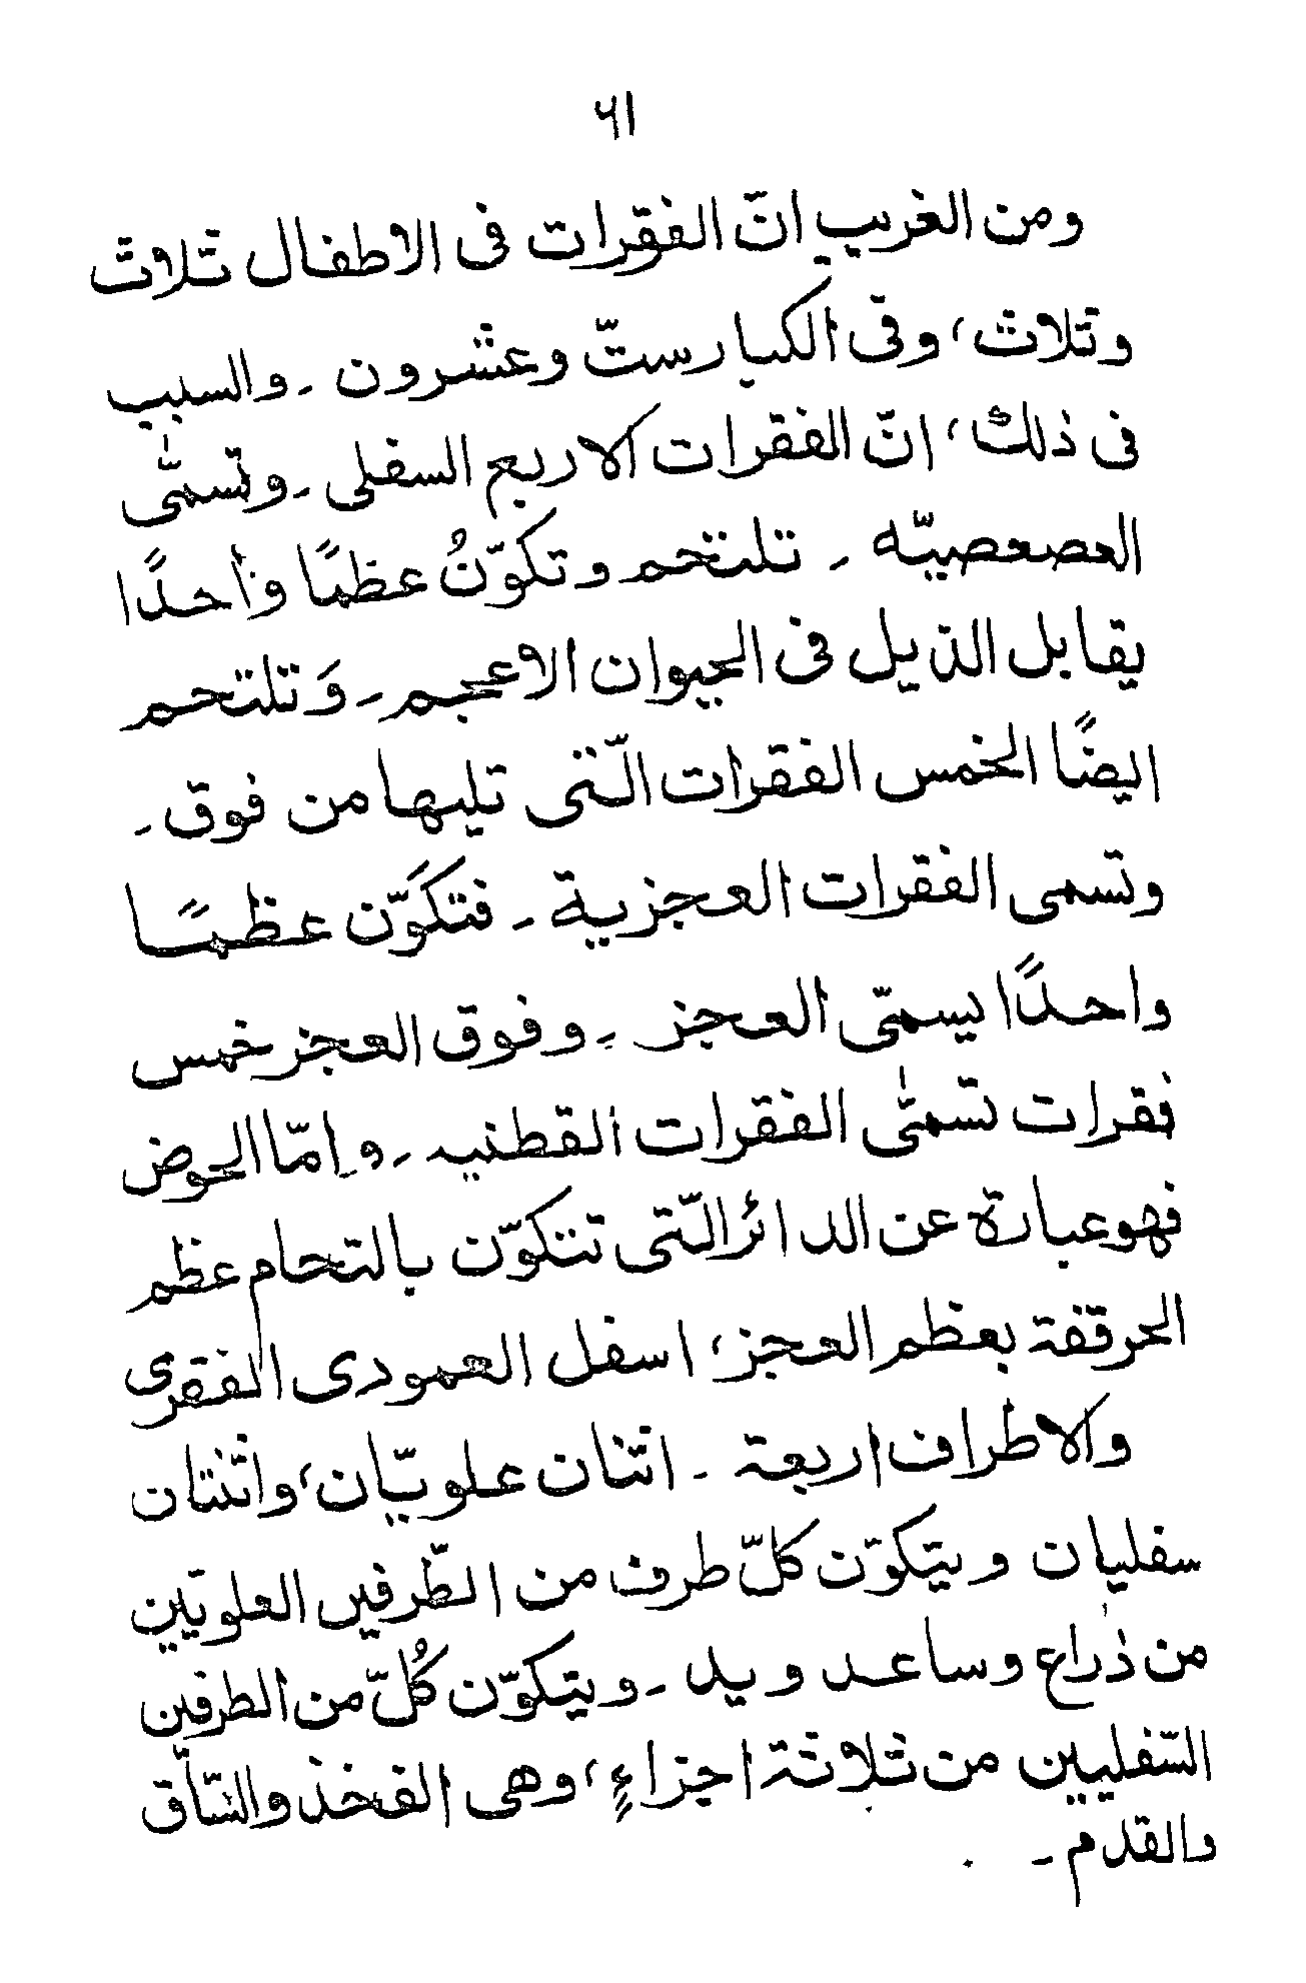 ٦١
ومن الغريب انّ الفقرات فى الاطفال ثلاث
وثلاث، وفى الكبار ستّ وعشرون ـ والسبب
فى ذلك، انّ الفقرات الاربع السفلى ـ وتسمّٰى
العصعصيّه ـ تلتحم وتكوّنُ عظمًا واحدًا
يقابل الذيل فى الحيوان الاعجم ـ وَتلتحم
ايضًا الخمس الفقرات الّتى تليها من فوق ـ
وتسمى الفقرات العجزية ـ فتكَوّن عظمًا
واحدًا يسمّى العجز ـ وفوق العجز خمس
فقرات تسمّٰى الفقرات القطنيه ـ وامّا الحوض
فهو عبارة عن الدائر الّتى تتكوّن بالتحام عظم
الحرقفة بعظم العجز، اسفل العمودى الفقرى
والاطراف اربعة ـ اثنان علويّان، واثنتان
سفليان ويتكوّن كلّ طرف من الطّرفين العلويّين
من ذراع وساعد ويد ـ ويتكوّن كُلّ من الطرفين
السّفليين من ثلاثة اجزاءٍ، وهى الفخذ والسّاق
والقدم ـ